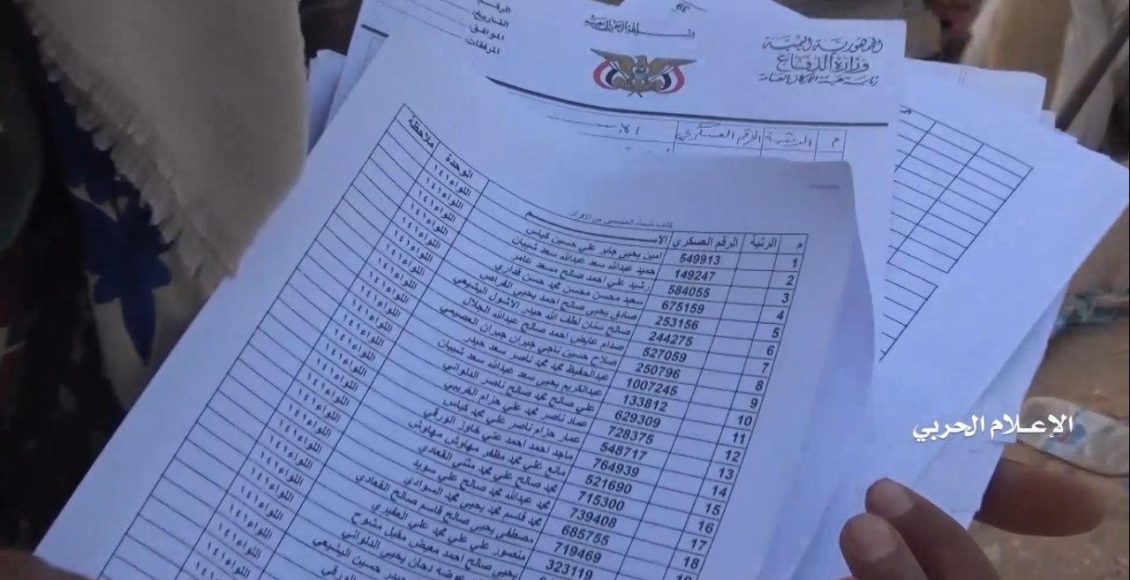 الرقم:
التاريخ:
الموافق:
المرفقات:
الجمهورية اليمنية
وزارة الدفاع
رئاسة هيئة الأركان العامة
م الرتبة الرقم العسكري الاسم
م الرتبة الرقم العسكري الاسم الوحدة ملاحظة
1 549913 أمين يحيى جابر علي حسين كباس اللواء١٤١
2 149247 حميد عبدالله سعد عبدالله سعد شبيان اللواء١٤١
3 584055 رشيد علي احمد صالح مسعد عامر اللواء١٤١
4 675159 سعيد محسن محسن محمد حسن قداري اللواء١٤١
5 253156 صادق يحيى صالح احمد يحيى القراص اللواء١٤١
6 244275 صالح سنان لطف الله حيدر الاشول البشيعي اللواء١٤١
7 527059 صدام عايض احمد صالح عبدالله الجلال اللواء١٤١
8 250796 صلاح حسين ناجي جبران جبران العصيمي اللواء١٤١
9 1007245 عبدالحفيظ محمد محمد ناصر سعد حيدر اللواء١٤١
10 133812 عبدالكريم يحيى سعد عبدالله سعد شبيان اللواء١٤١
11 629309 علي صالح محمد صالح ناصر الدلواني اللواء١٤١
12 728375 عماد ناصر محمد علي حزام الغريبي اللواء١٤١
13 548717 عمار حزام ناصر علي محمد كباس اللواء١٤١
14 764939 ماجد احمد احمد علي الورقي اللواء١٤١
15 521690 مانع علي محمد مظفر مهاوش مهاوش اللواء١٤١
16 715300 محمد صالح علي محمد مثنى القعادي اللواء١٤١
17 739408 محمد عبدالله محمد صالح علي سويد اللواء١٤١
18 685755 محمد قاسم محمد يحيى محمد السوادي اللواء١٤١
19 719469 مصطفى يحيى صالح قاسم صالح القعادي اللواء١٤١
323119 منصور علي علي محمد علي العفيري اللواء١٤١
يحيى صالح احمد معيض مقبل مشوح
يحيى الدلواني
حسين البشيعي
الورقي
الإعلام الحربي